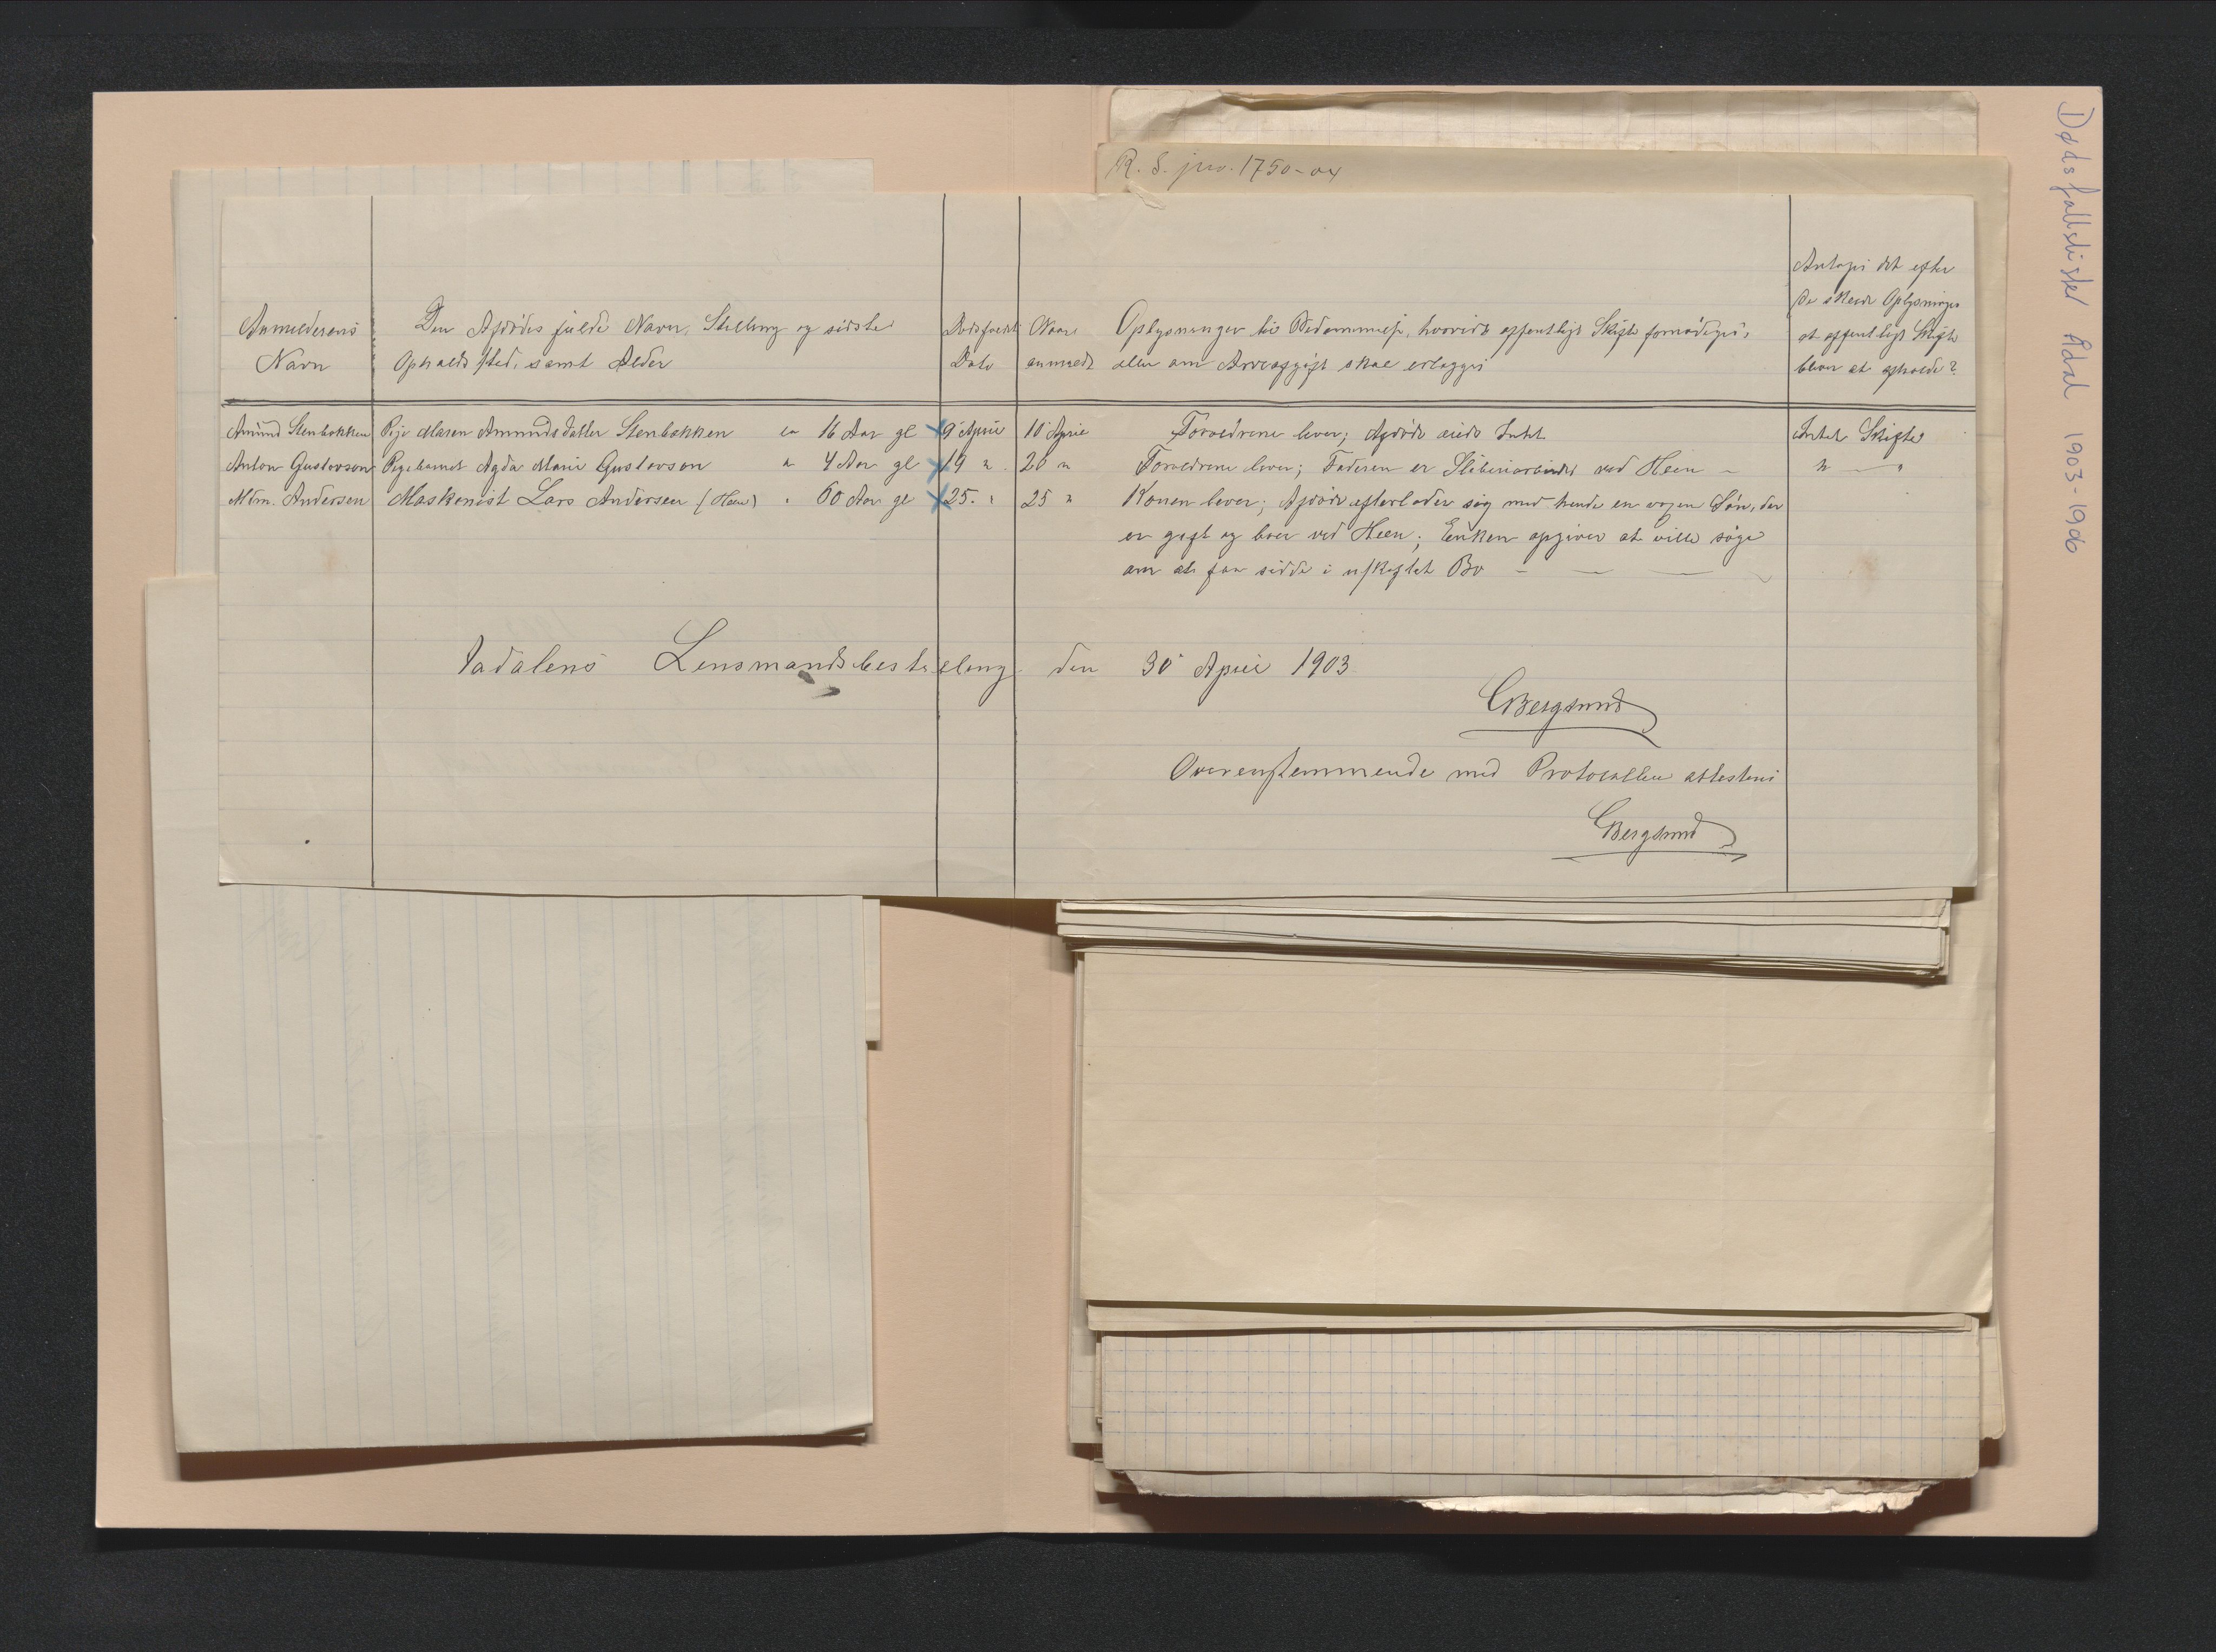 Dødsfallslister Ådal 1903-1906
R. S. jno. 1750-04
Anmelderens
Navn
Den Afdødes fulde Navn, Stilling og sidste
Opholdssted, samt Alder
Dødsfaldets
Dato
Naar
anmeldt
Oplysninger til Bedømmelse, hvorvidt offentligt Skifte fornødiges,
eller om Arveafgift skal erlægges
Antages det efter
de skeede Oplysninger
at offentligt Skifte
bliver at afholde?
Amund Stenbakken Pige Maren Amundsdatter Stenbakken ca 16 Aar gl 9 April 10 April Forældrene lever; Afdøde eiede Intet Intet Skifte
Anton Gustavson Pigebarnet Agda Marie Gustavson " 4 Aar gl 19 " 20 " Forældrene lever; Faderen er Sliberiarbeider ved Heen - " — "
Mtrn. Andersen Maskenist Lars Andersen (Heen) " 60 Aar gl 25. " 25 " Konen lever; Afdøde efterlader sig med hende en voxen Søn, der
er gift og boer ved Heen; Enken opgiver at ville søge
om at faa sidde i uskiftet Bo - — —
Aadalens Lensmandsbestilling den 30 April 1903
CBergsund
Overensstemmende med Protocollen attesteres
CBergsund